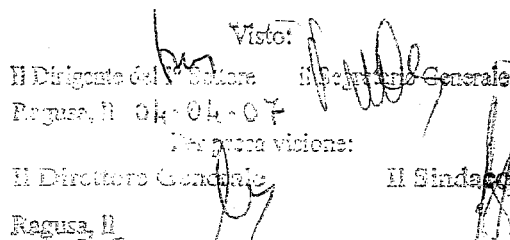 Visto:
Il Dirigente del 1° Settore il Segretario Generale
Ragusa, il 04-04-07
Per presa visione:
Il Direttore Generale Il Sindaco
Ragusa, il